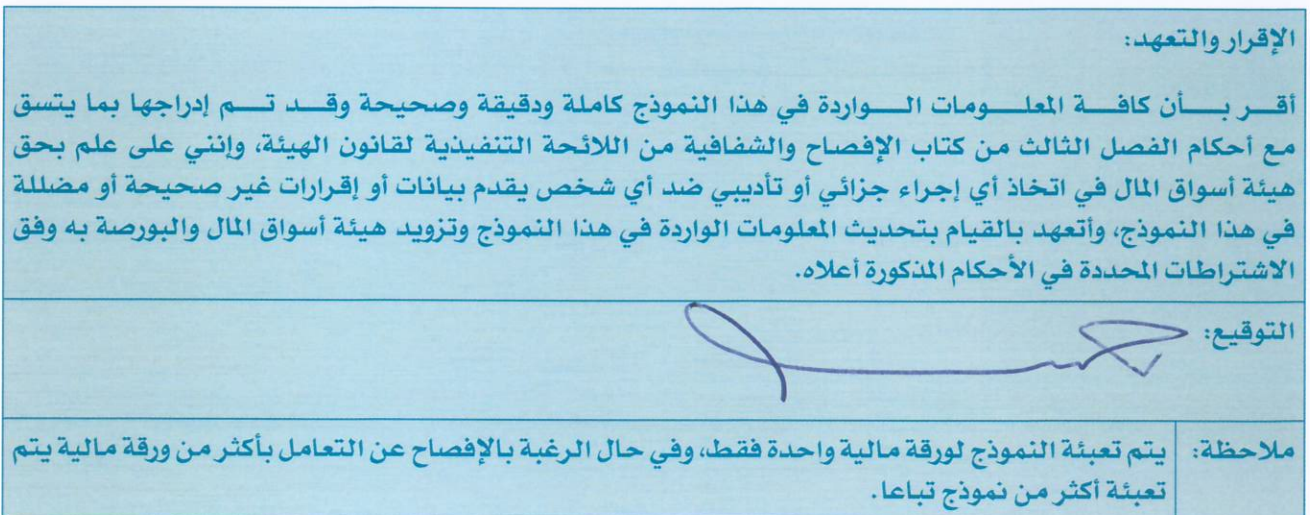 الإقرار والتعهد:
أقر بأن كافة المعلومات الواردة في هذا النموذج كاملة ودقيقة وصحيحة وقد تم إدراجها بما يتسق
مع أحكام الفصل الثالث من كتاب الإفصاح والشفافية من اللائحة التنفيذية لقانون الهيئة، وإنني على علم بحق
هيئة أسواق المال في اتخاذ أي إجراء جزائي أو تأديبي ضد أي شخص يقدم بيانات أو إقرارات غير صحيحة أو مضللة
في هذا النموذج، وأتعهد بالقيام بتحديث المعلومات الواردة في هذا النموذج وتزويد هيئة أسواق المال والبورصة به وفق
الاشتراطات المحددة في الأحكام المذكورة أعلاه.
التوقيع:
ملاحظة: يتم تعبئة النموذج لورقة مالية واحدة فقط، وفي حال الرغبة بالإفصاح عن التعامل بأكثر من ورقة مالية يتم
تعبئة أكثر من نموذج تباعا.